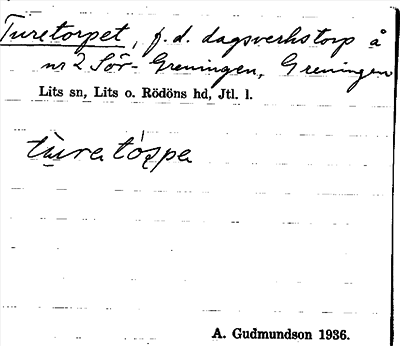 Turetorpet, f.d. dagsverkstorp å
nr 2 Sör-Greningen, Greningen
Lits sn, Lits o. Rödöns hd, Jtl. l.
tùratórpa
A. Gudmundson 1936.